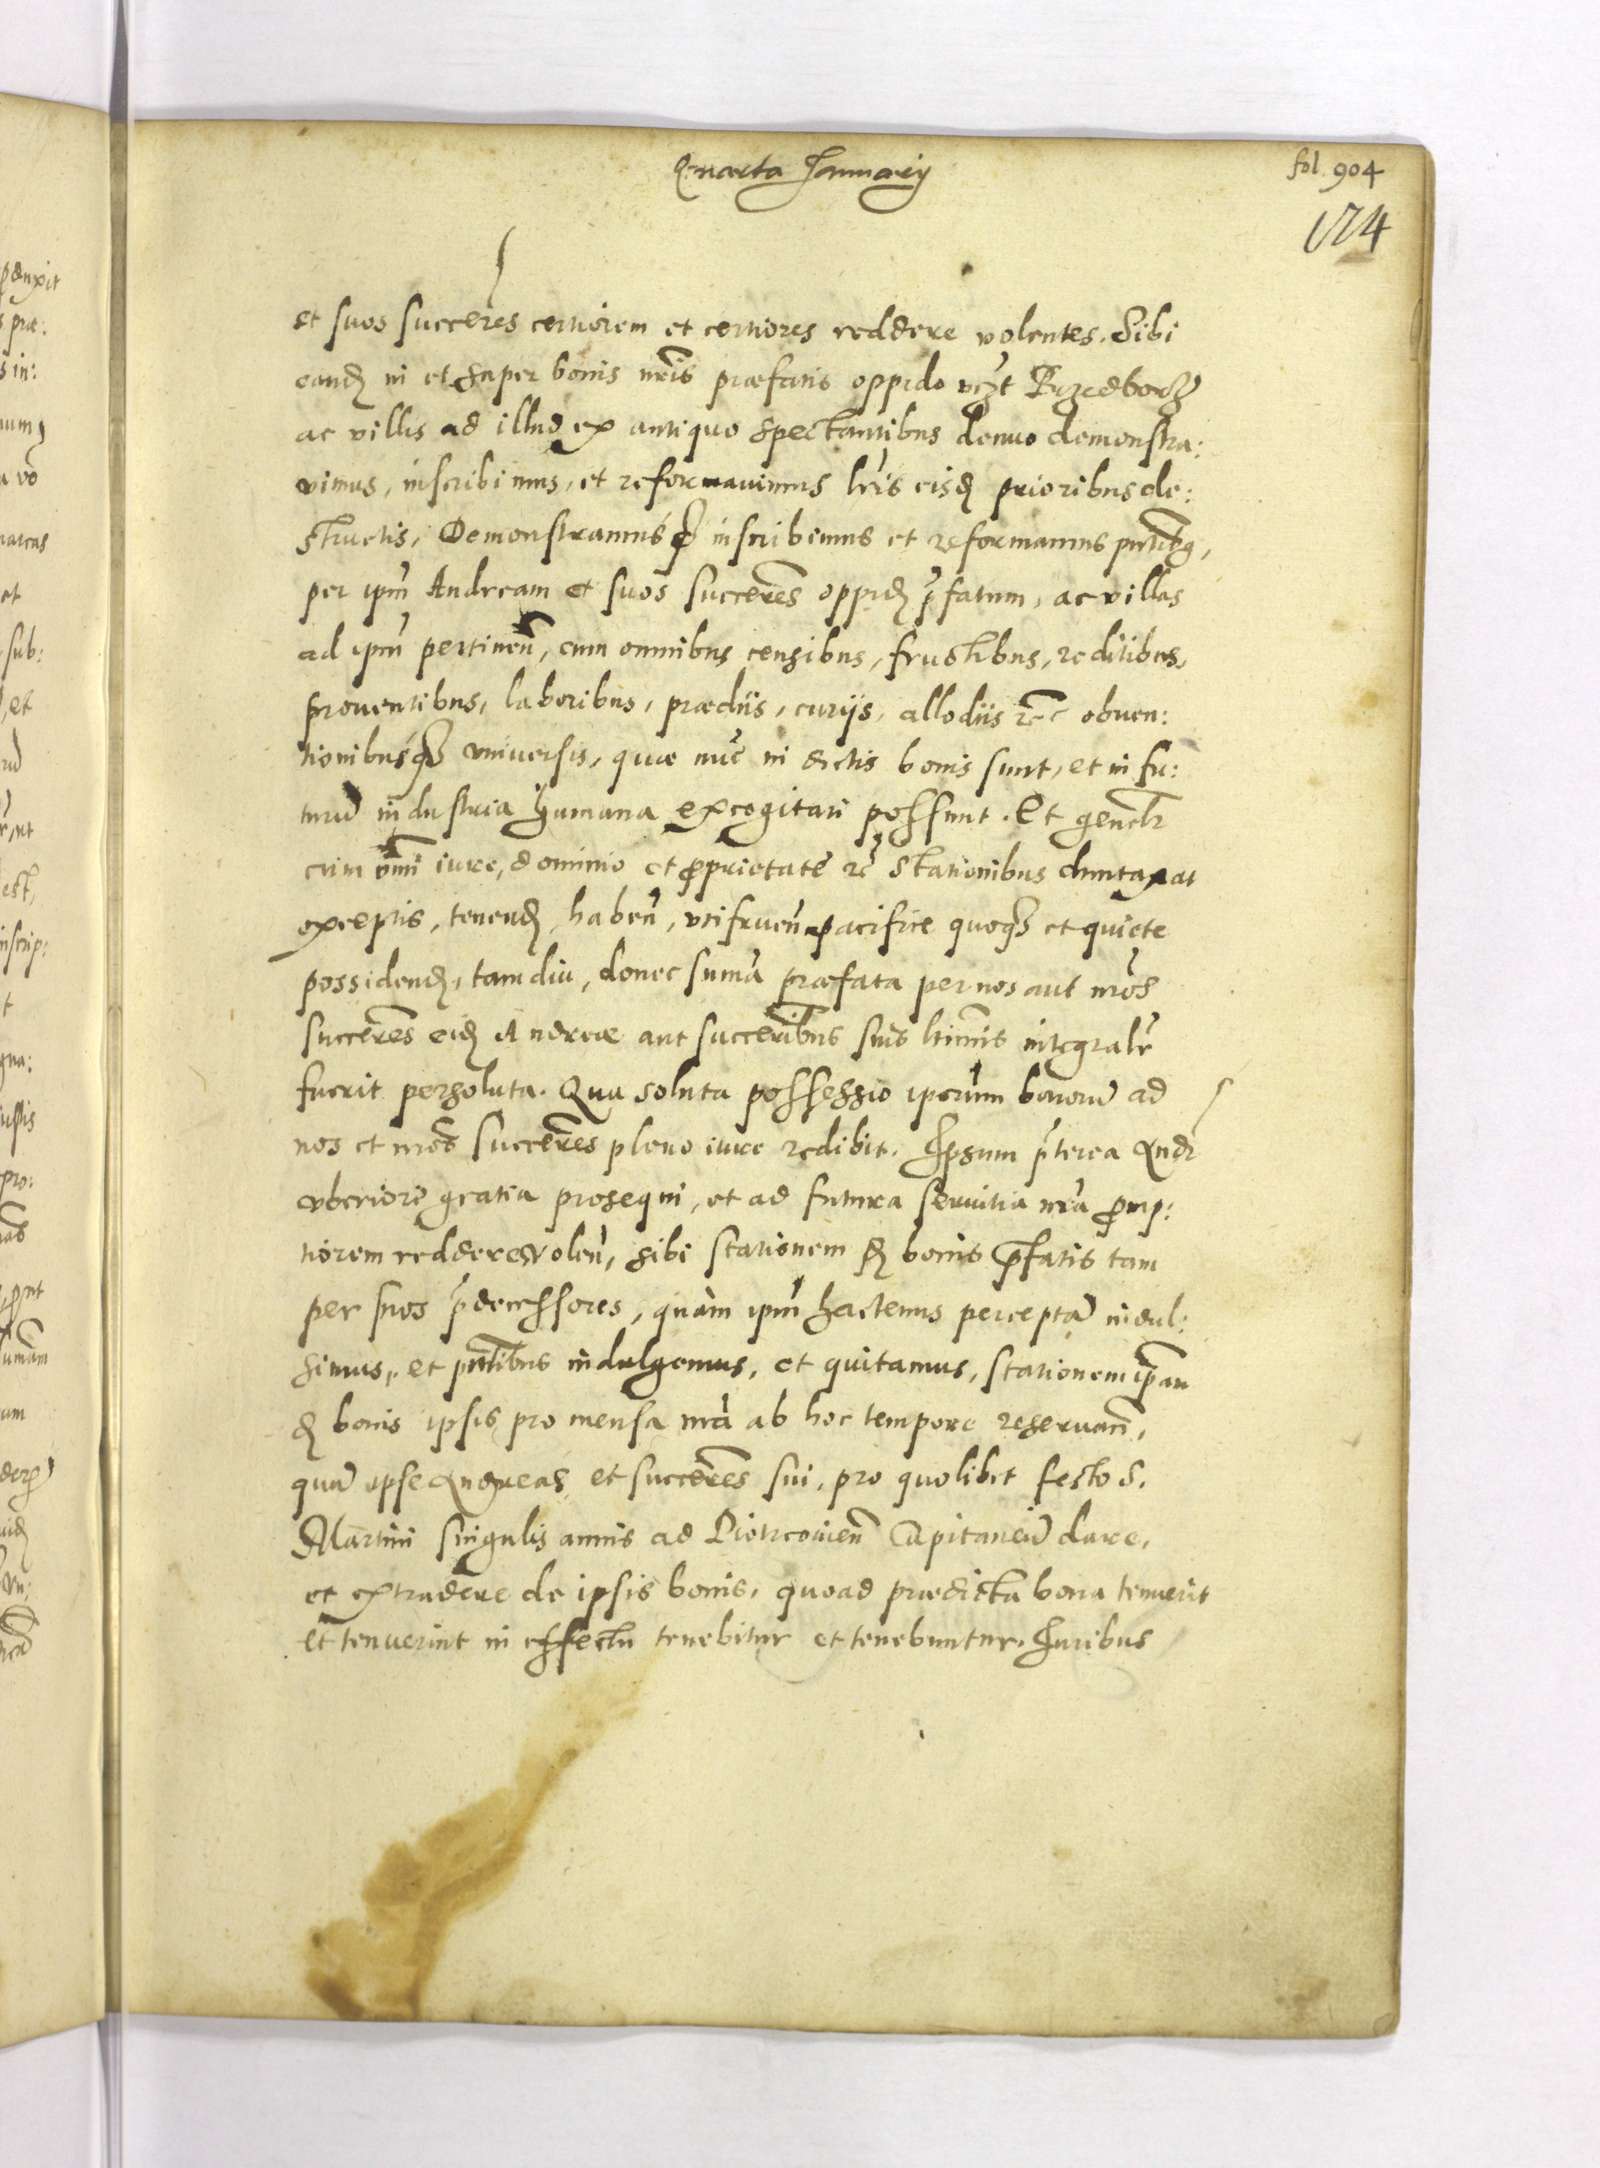 Quarta January
fol. 904
174
et suos succeres certiorem et certiores reddere volentes. Sibi
eand in et super bonis nris præfatis oppido vczt Przedborz
ac villis ad illud ex antiquo spectantibus denuo demonstra:
vimus, inscribimus, et reformavimus lris eisd prioribus de:
structis, Demonstramusq inscribimus et reformamus pntibq,
per ipm Andream et suos succeres oppid pfatum, ac villas
ad ipm pertinen, cum omnibus censibus, fructibus, reditibus,
proventibus, laboribus, prædiis, curijs, allodiis etc obven:
tionibusq universis, quæ nuc in dictis bonis sunt, et in fu:
turu industria humana excogitari possunt. Et genelr
cum omi iure, dominio et proprietate etc stationibus duntaxat
exceptis, tenend, haben, utifruen pacifice quoq et quiete
possidend, tamdiu, donec suma præfata per nos aut nros
succeres eid Andreæ aut succeribus suis ltimis integralr
fuerit persoluta. Qua soluta possessio ipsrum bonoru ad
nos et nros succeres pleno iure redibit. Ipsum pterea Andr
uberiori gratia prosequi, et ad futura servitia nra promp:
tiorem reddere volen, sibi stationem d bonis pfatis tam
per suos pdecessores, quàm ipm hactenus percepta indul:
simus, et pntibus indulgemus, et quitamus, stationem ipsam
d bonis ipsis pro mensa nra ab hoc tempore reservan,
qua ipse Andreas et succeres sui, pro quolibet festo S.
Martini singulis annis ad Piotrcovien Capitaneu dare,
et extradere de ipsis bonis, quoad prædicta bona tenuerit
et tenuerint in effectu tenebitur et tenebuntur. Iuribus